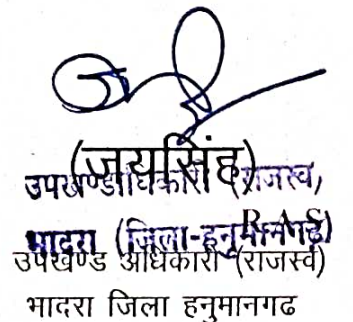 (जयसिंह)
उपखण्डाधिकारी (राजस्व)
R.A.S.
भादरा (जिला-हनुमानगढ़)
उपखण्ड अधिकारी (राजस्व)
भादरा जिला हनुमानगढ